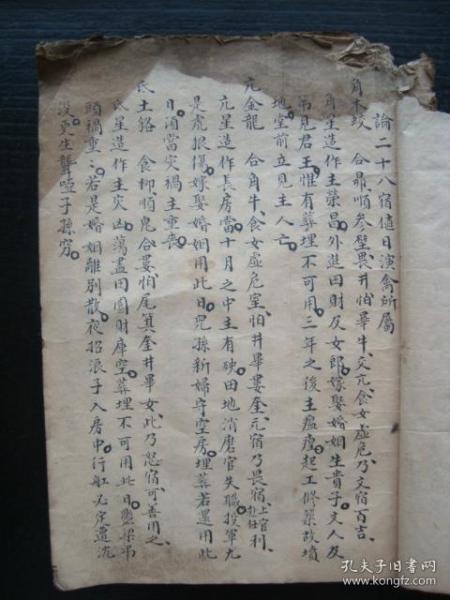 論二十八宿值日演禽所屬
角木蛟 合昴順參壁畏井怕畢牛交亢食女虛危乃文宿百吉
角星造作主榮昌外進田財及女郎嫁娶婚姻生貴子文人及
第見君王惟有葬埋不可用三年之後主瘟㾮起工修築政墳
地堂前立見主人亡
亢金龍 合角牛食女虛危室怕井畢婁奎亢宿乃畏宿上官赴任利
亢星造作長房當十月之中主有砍田地消磨官失職投軍尤
是虎狼傷嫁娶婚姻用此日児孫新婦守空房埋葬若還用此
日湏當灾禍主重喪
氐土貉 食柳順鬼合婁怕尾箕奎井畢女此乃怒宿可善用之
氐星造作主灾凶蕩盡田園財庫空葬埋不可用此日懸梁吊
頸禍重〻若是婚姻離別散夜招浪子入房中行舡必定遭沉
没更生聾啞子孫穷
孔夫子旧书网
book.kongfz.com